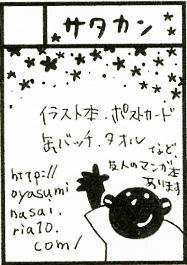 サタカン
イラスト本.ポストカード
缶バッチ.タオル
など
友人のマンガ本
あります
http://
oyasumi
nasai.
ria10.
com/